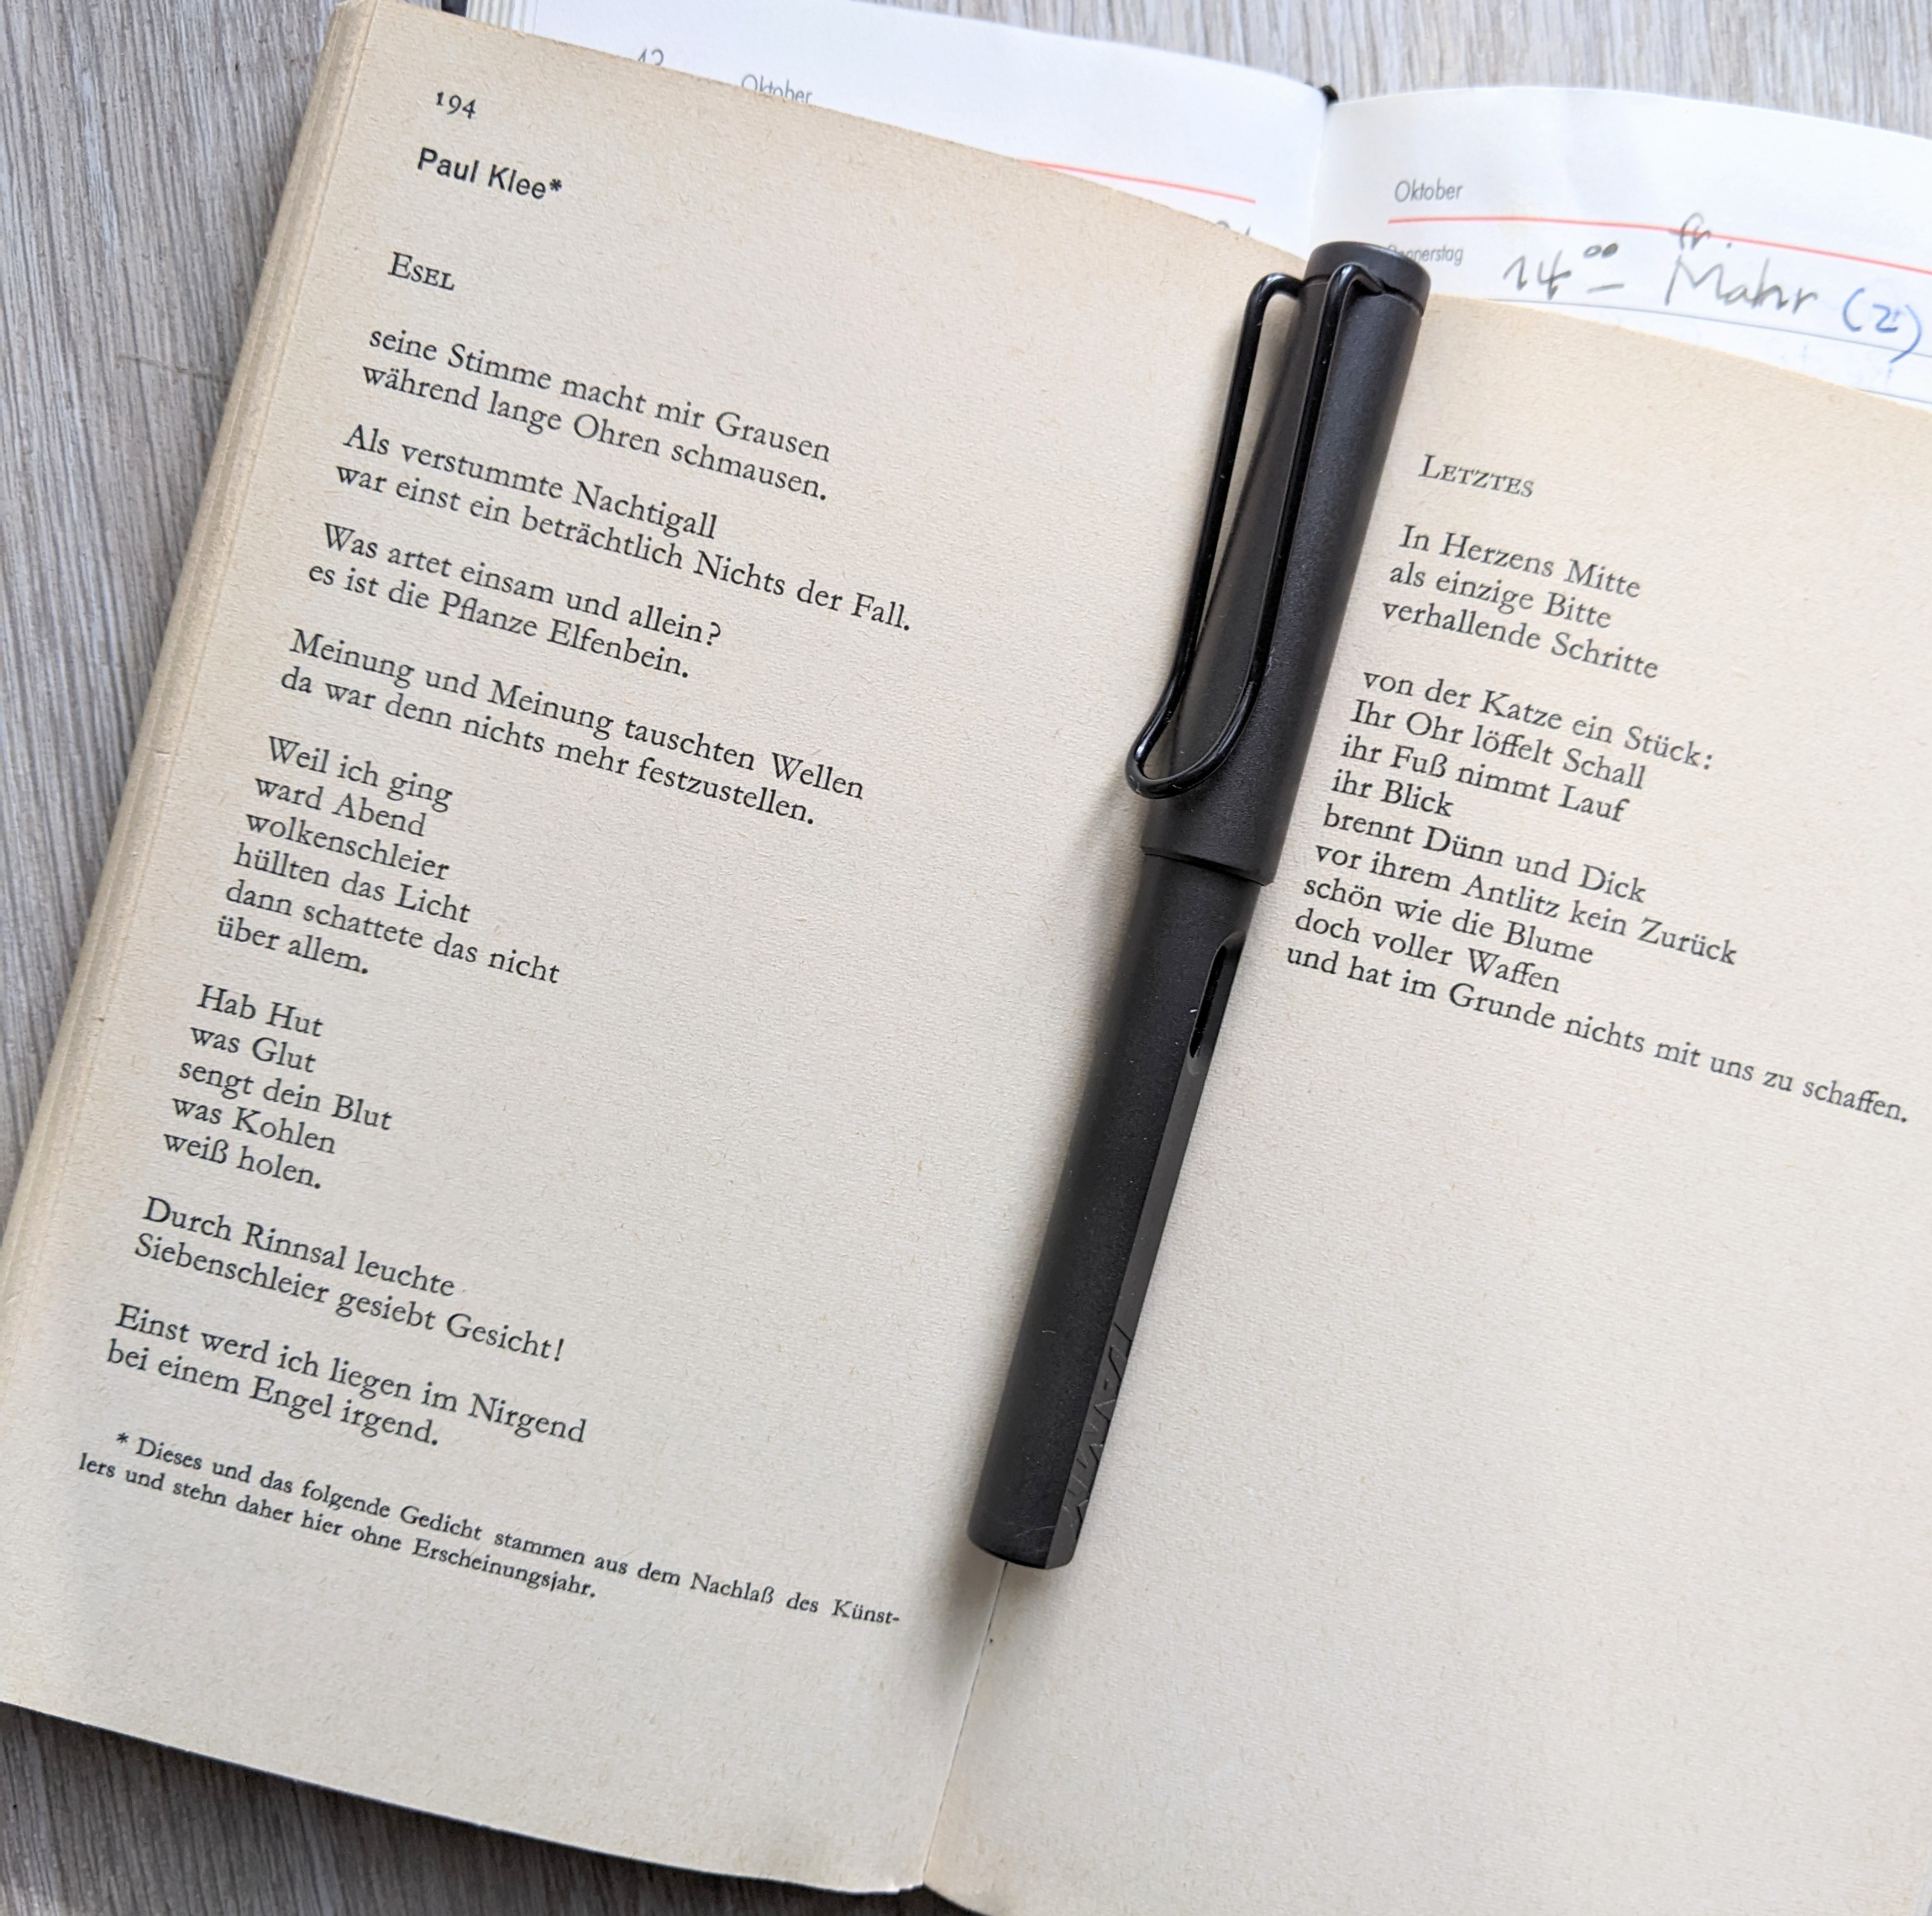 Oktober
194
Paul Klee*
ESEL
seine Stimme macht mir Grausen
während lange Ohren schmausen.
Als verstummte Nachtigall
war einst ein beträchtlich Nichts der Fall.
Was artet einsam und allein?
es ist die Pflanze Elfenbein.
Meinung und Meinung tauschten Wellen
da war denn nichts mehr festzustellen.
Weil ich ging
ward Abend
wolkenschleier
hüllten das Licht
dann schattete das nicht
über allem.
Hab Hut
was Glut
sengt dein Blut
was Kohlen
weiß holen.
Durch Rinnsal leuchte
Siebenschleier gesiebt Gesicht!
Einst werd ich liegen im Nirgend
bei einem Engel irgend.
* Dieses und das folgende Gedicht stammen aus dem Nachlaß des Künst-
lers und stehn daher hier ohne Erscheinungsjahr.
Oktober
Donnerstag
14⁰⁰ – Fr. Mahr (2)
LETZTES
In Herzens Mitte
als einzige Bitte
verhallende Schritte
von der Katze ein Stück:
Ihr Ohr löffelt Schall
ihr Fuß nimmt Lauf
ihr Blick
brennt Dünn und Dick
vor ihrem Antlitz kein Zurück
schön wie die Blume
doch voller Waffen
und hat im Grunde nichts mit uns zu schaffen.
LAMY